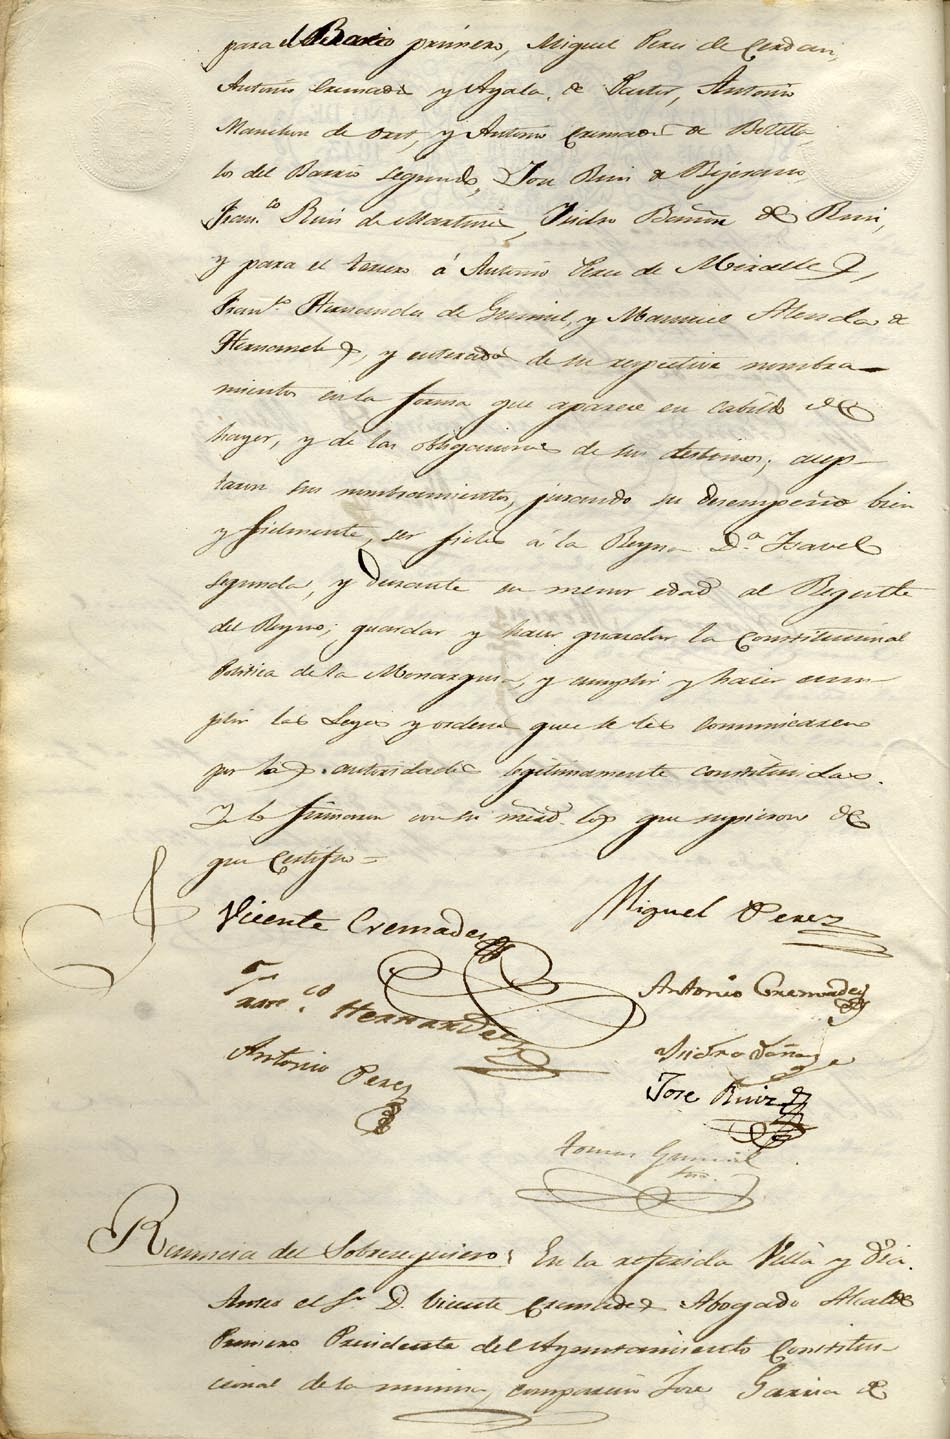 para el Barrio primero, Miguel Perez de Cerdan,
Antonio Cremades y Ayala, de Pastor, Antonio
Manchon de y Antonio Cremades de Botella
los del Barrio segundo, Jose Ruiz de Bejerano,
Fran.co Ruiz de Martinez, Isidro de Ruiz,
y para el tercero á Antonio Perez de Miralles,
Fran.co Hernandez de y Manuel Alenda de
Hernandez, y enterados de su respective nombra
mientos en la forma que aparece en cabildo de
hayer, y de las obligaciones de sus destinos; acep-
taron sus nombramientos, jurando su desempeño bien
y fielmente, ser fieles á la Reyna D.a Isavel
segunda, y durante su menor edad al Regente
del Reyno; guardar y hacer guardar la Constitucional
Politica de la Monarquia, y cumplir y hacer cum-
plir las Leyes y ordenes que se les comunicasen
por las autoridades legitimamente constituidas.
Y lo firmaron con su mrd. los que supieron de
que Certifico =
Vicente Cremades Miguel Perez
Franc.co Hernandez Antonio Cremades
Antonio Perez Isidro
Jose Ruiz
Tomas
Renuncia del Sobrecequiero; En la referida Villa y dia.
Antes el Sr. D. Vicente Cremades Abogado Alcalde
Primero Presidente del Ayuntamiento Constitu-
cional de la misma, comparecio Jose Garcia de